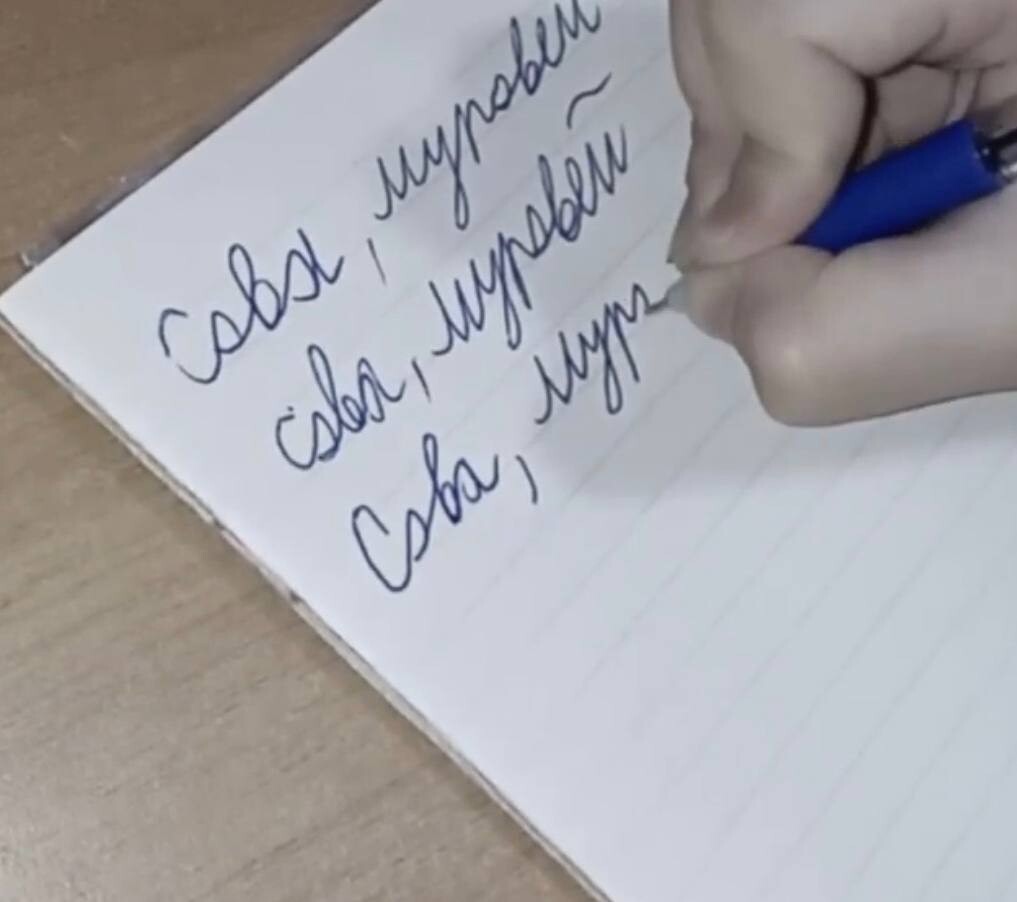 Сова, муровей
сова, муровей
Сова, муро